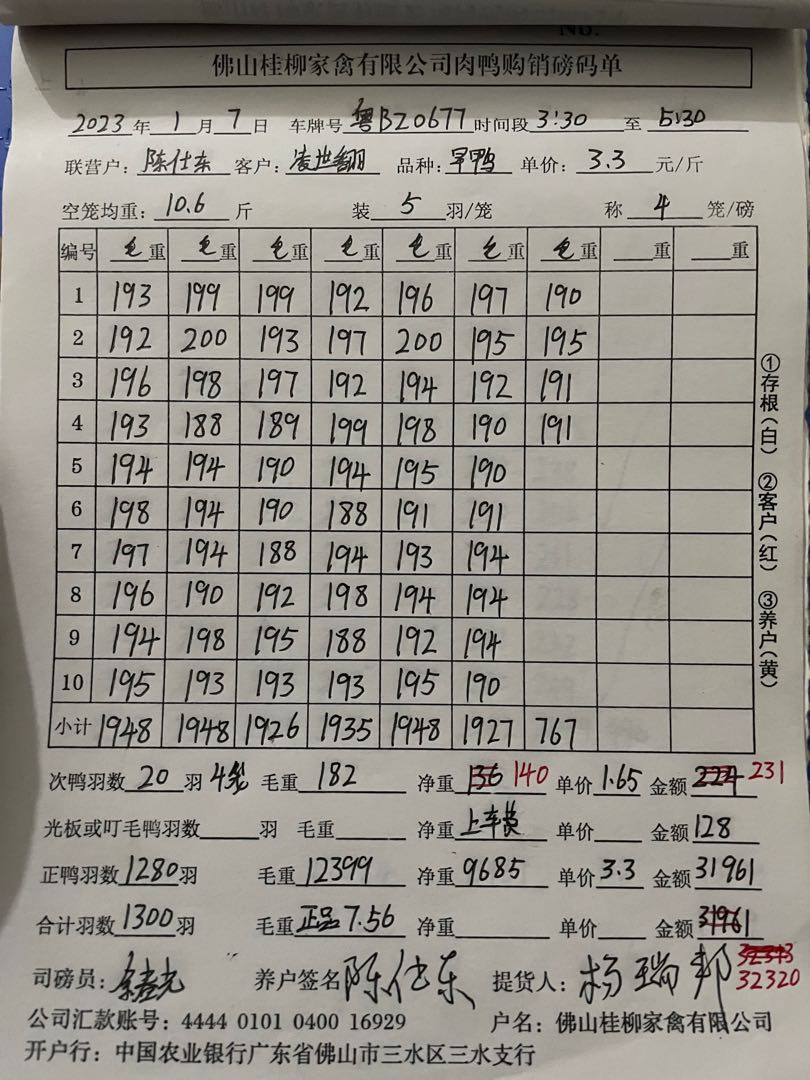 No.
佛山桂柳家禽有限公司肉鸭购销磅码单
2023 年 1 月 7 日 车牌号 粤BZ0677 时间段 3:30 至 5:30
联营户: 陈仕东 客户: 凌世翻 品种: 旱鸭 单价: 3.3 元/斤
空笼均重: 10.6 斤 装 5 羽/笼 称 4 笼/磅
编号 毛重 毛重 毛重 毛重 毛重 毛重 毛重 重 重
1 193 199 199 192 196 197 190
2 192 200 193 197 200 195 195
3 196 198 197 192 194 192 191
4 193 188 189 199 198 190 191
5 194 194 190 194 195 190
6 198 194 190 188 191 191
7 197 194 188 194 193 194
8 196 190 192 198 194 194
9 194 198 195 188 192 194
10 195 193 193 193 195 190
小计 1948 1948 1926 1935 1948 1927 767
①存根(白) ②客户(红) ③养户(黄)
次鸭羽数 20 羽 4笼 毛重 182 净重 136 140 单价 1.65 金额 224 231
光板或叮毛鸭羽数 羽 毛重 净重 上车费 单价 金额 128
正鸭羽数 1280 羽 毛重 12399 净重 9685 单价 3.3 金额 31961
合计羽数 1300 羽 毛重 正品7.56 净重 单价 金额 31961
32313
司磅员: 养户签名 陈仕东 提货人: 杨瑞邦 32320
公司汇款账号: 4444 0101 0400 16929 户名: 佛山桂柳家禽有限公司
开户行: 中国农业银行广东省佛山市三水区三水支行